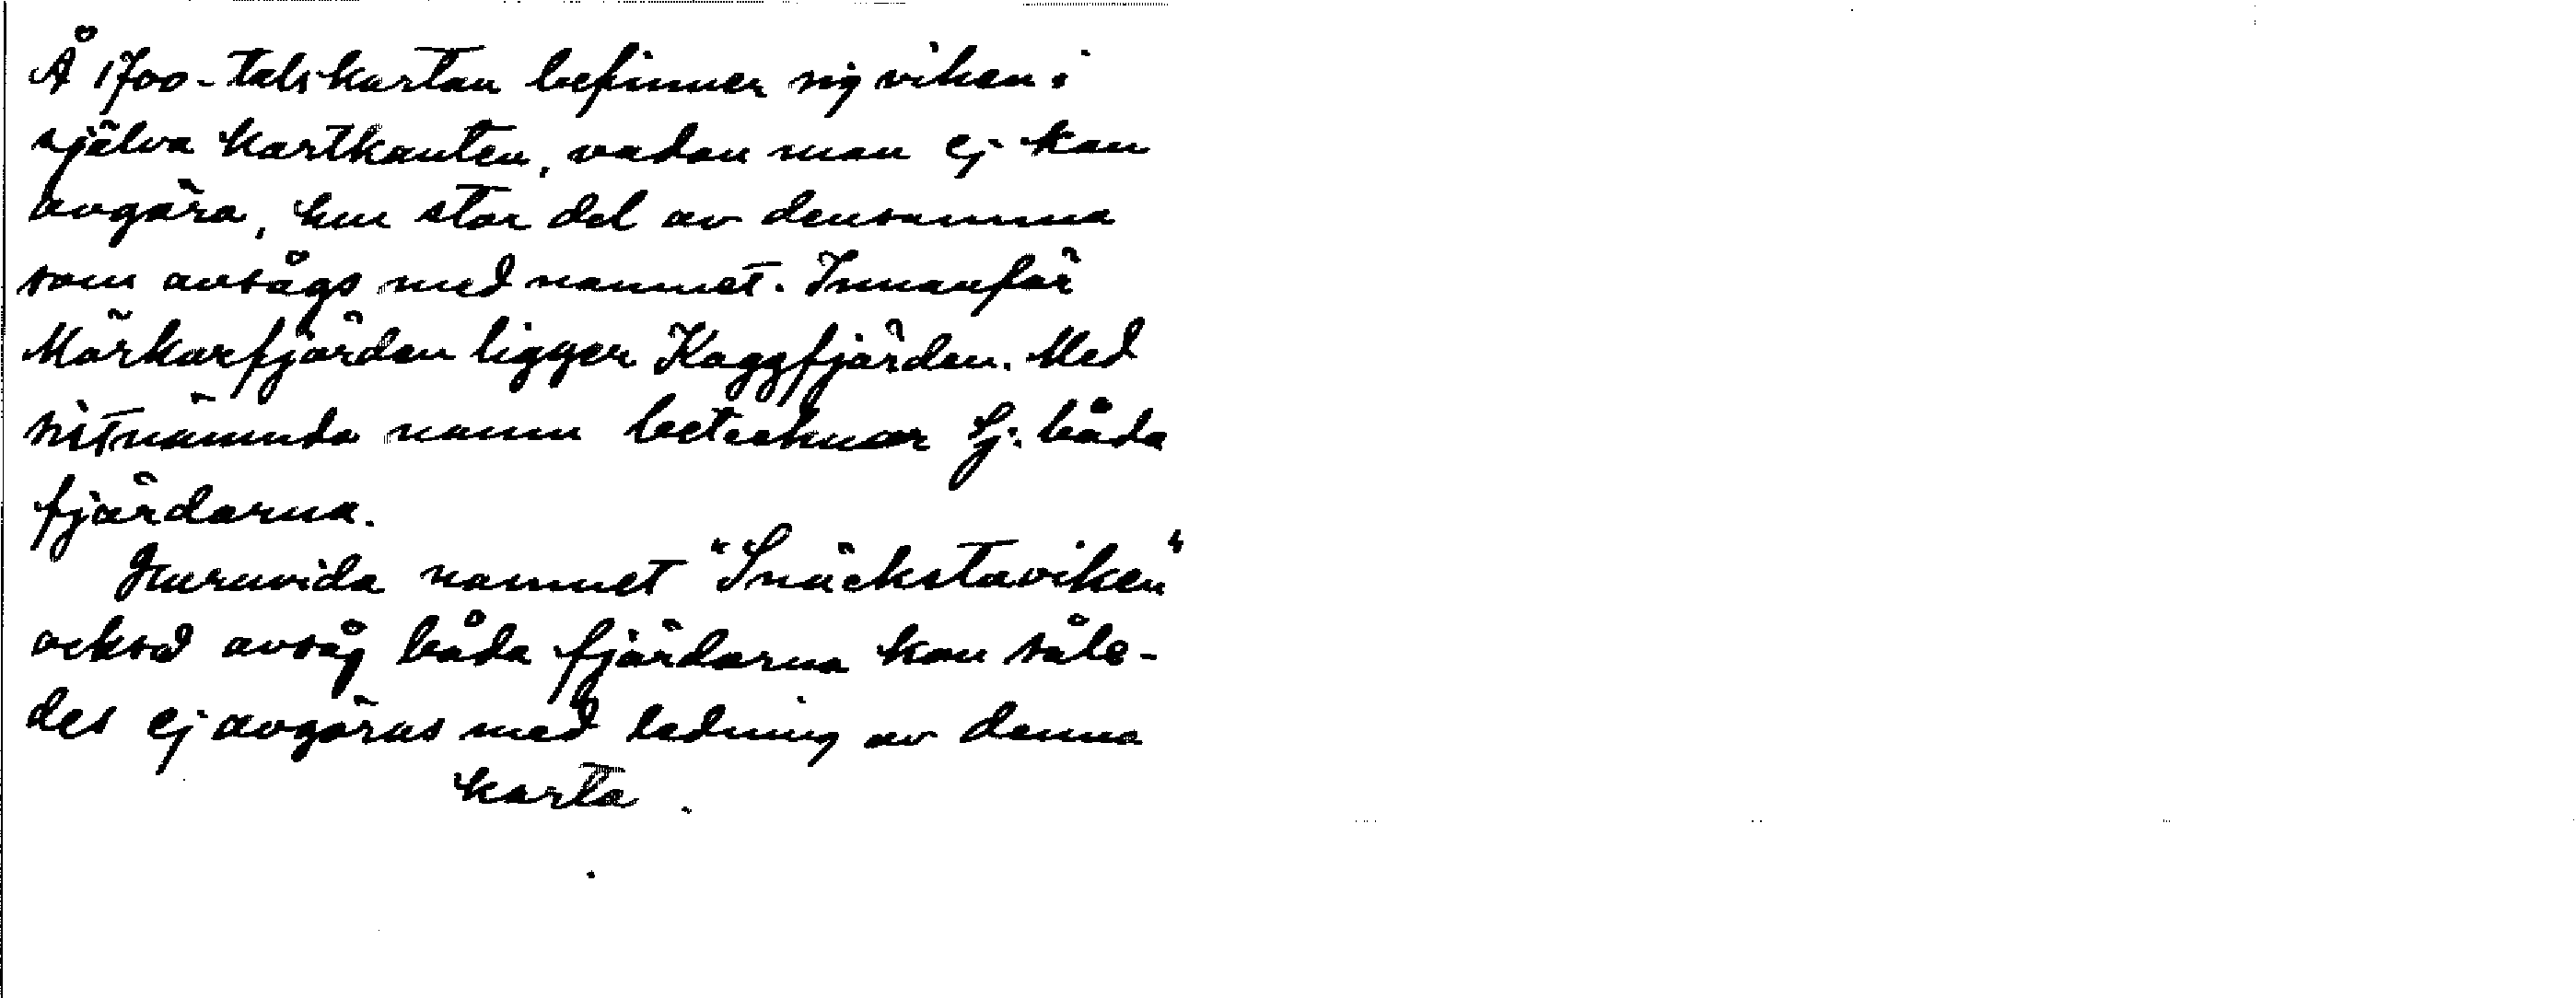 Å 1700-talskartan befinner sig viken i
själva kartkanten, vadan man ej kan
avgöra, hur stor del av densamma
som avsågs med namnet. Innanför
Mörkarfjärden ligger Kaggfjärden. Med
sistnämnda namn betecknar Sj. båda
fjärdarna.
Huruvida namnet "Snäckstaviken"
också avsåg båda fjärdarna kan såle-
des ej avgöras med ledning av denna
karta.